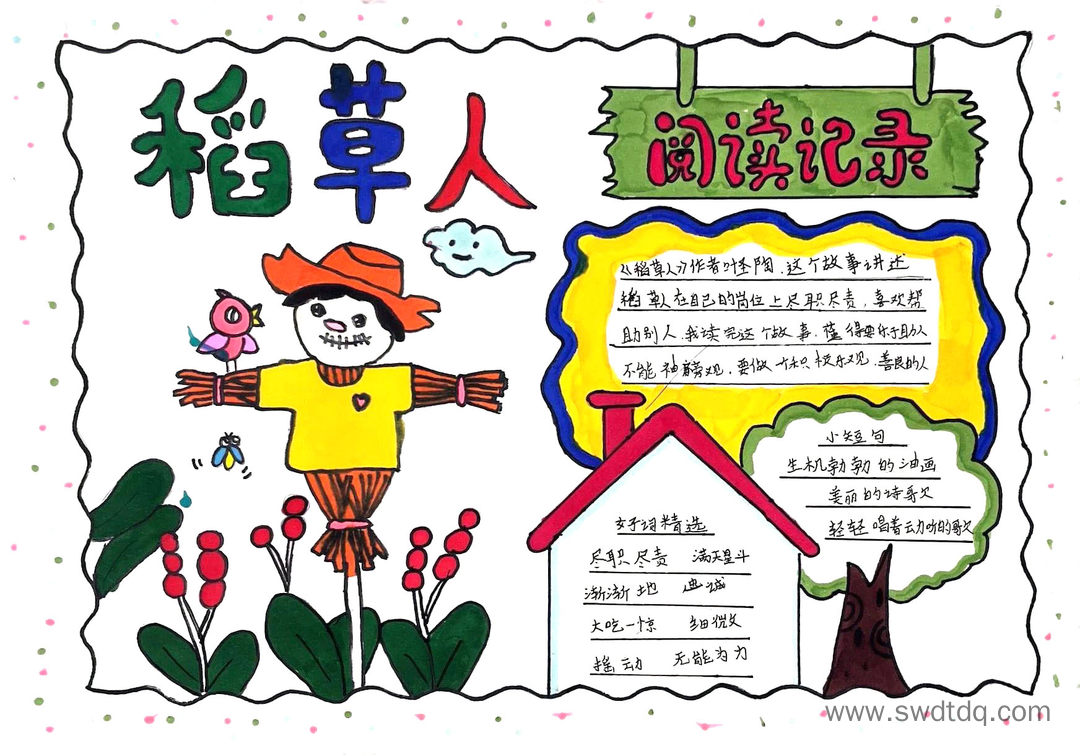 稻草人
阅读记录
《稻草人》作者叶圣陶,这个故事讲述
稻草人在自己的岗位上尽职尽责,喜欢帮
助别人,我读完这个故事,懂得要乐于助人
不能袖旁观,要做一个积极乐观,善良的人
小短句
生机勃勃的油画
美丽的诗歌
轻轻唱着动听的歌
好词精选
尽职尽责 满天星斗
渐渐地 虔诚
大吃一惊 细微
摇动 无能为力
www.swdtdq.com